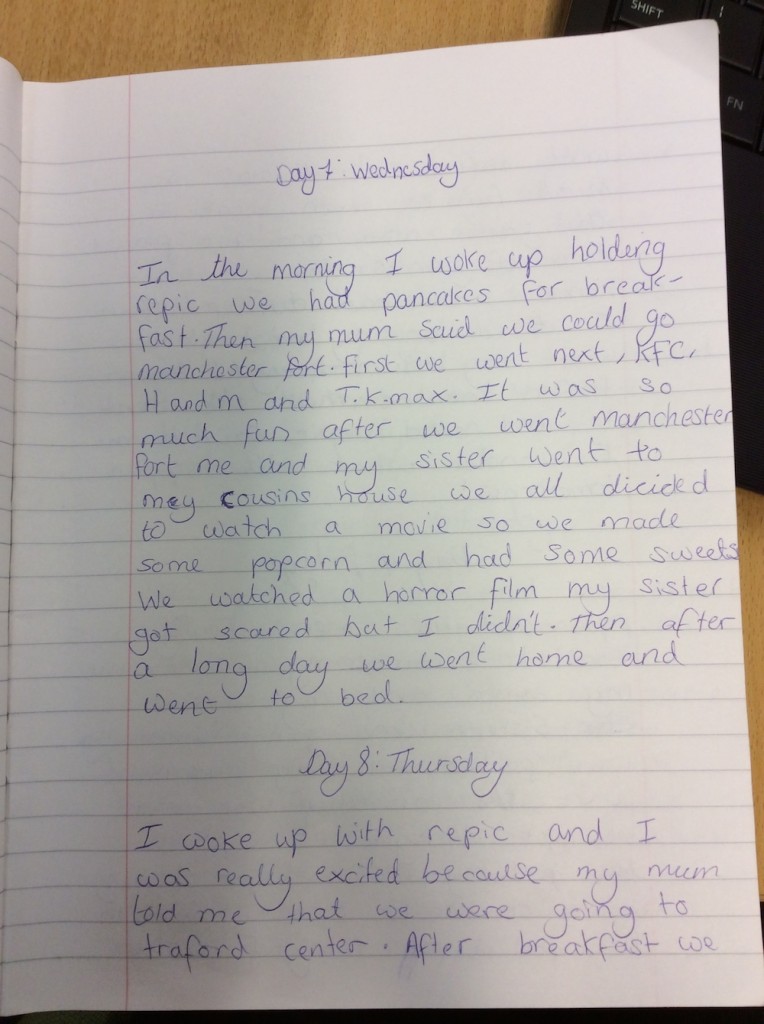 SHIFT
FN
Day 7: Wednesday
In the morning I woke up holdeng
repic we had pancakes for break-
fast. Then my mum said we could go
manchester fort. first we went next, KFC,
H and m and T.K.max. It was so
much fun after we went manchester
fort me and my sister went to
mey cousins house we all dicided
to watch a movie so we made
some popcorn and had some sweets
We watched a horror film my sister
got scared but I didn't. Then after
a long day we went home and
went to bed.
Day 8: Thursday
I woke up with repic and I
was really excited becaulse my mum
told me that we were going to
traford center. After breakfast we